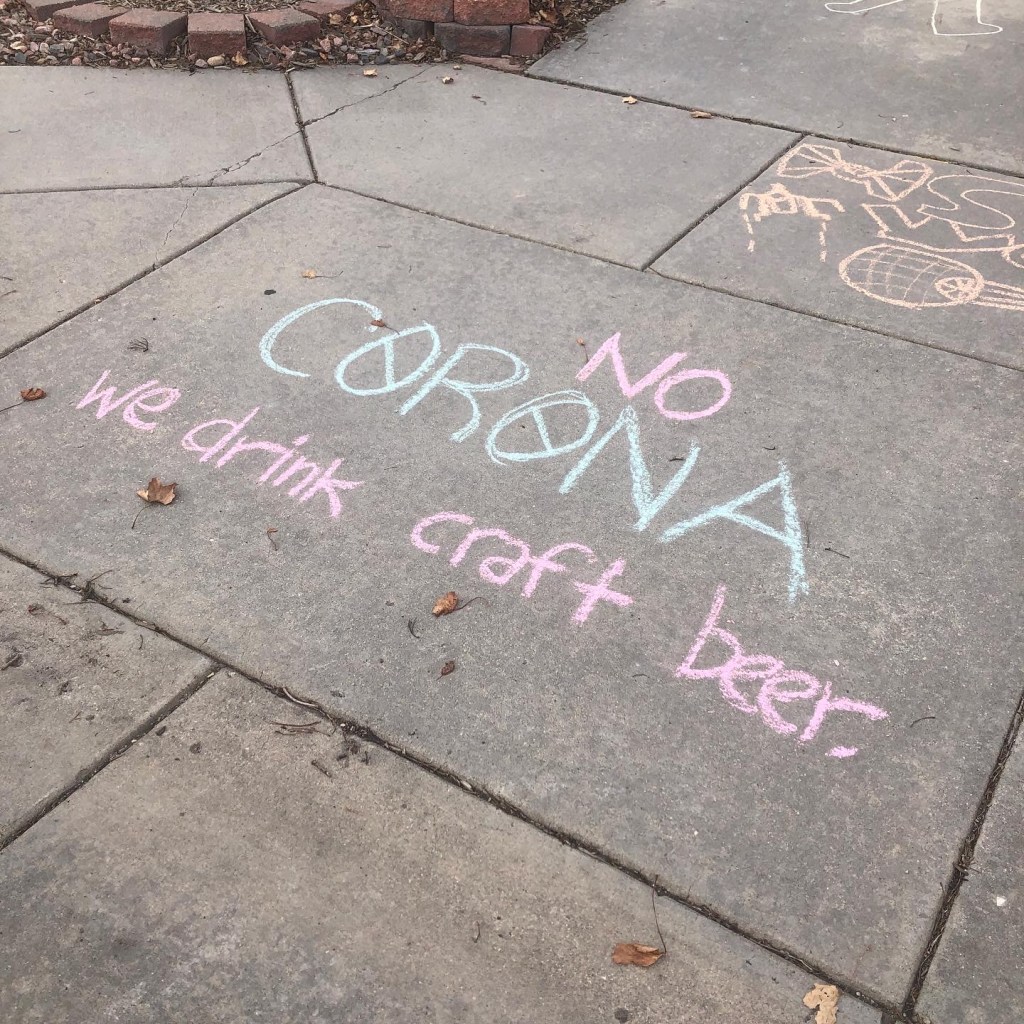 NO
CORONA
we drink craft beer.